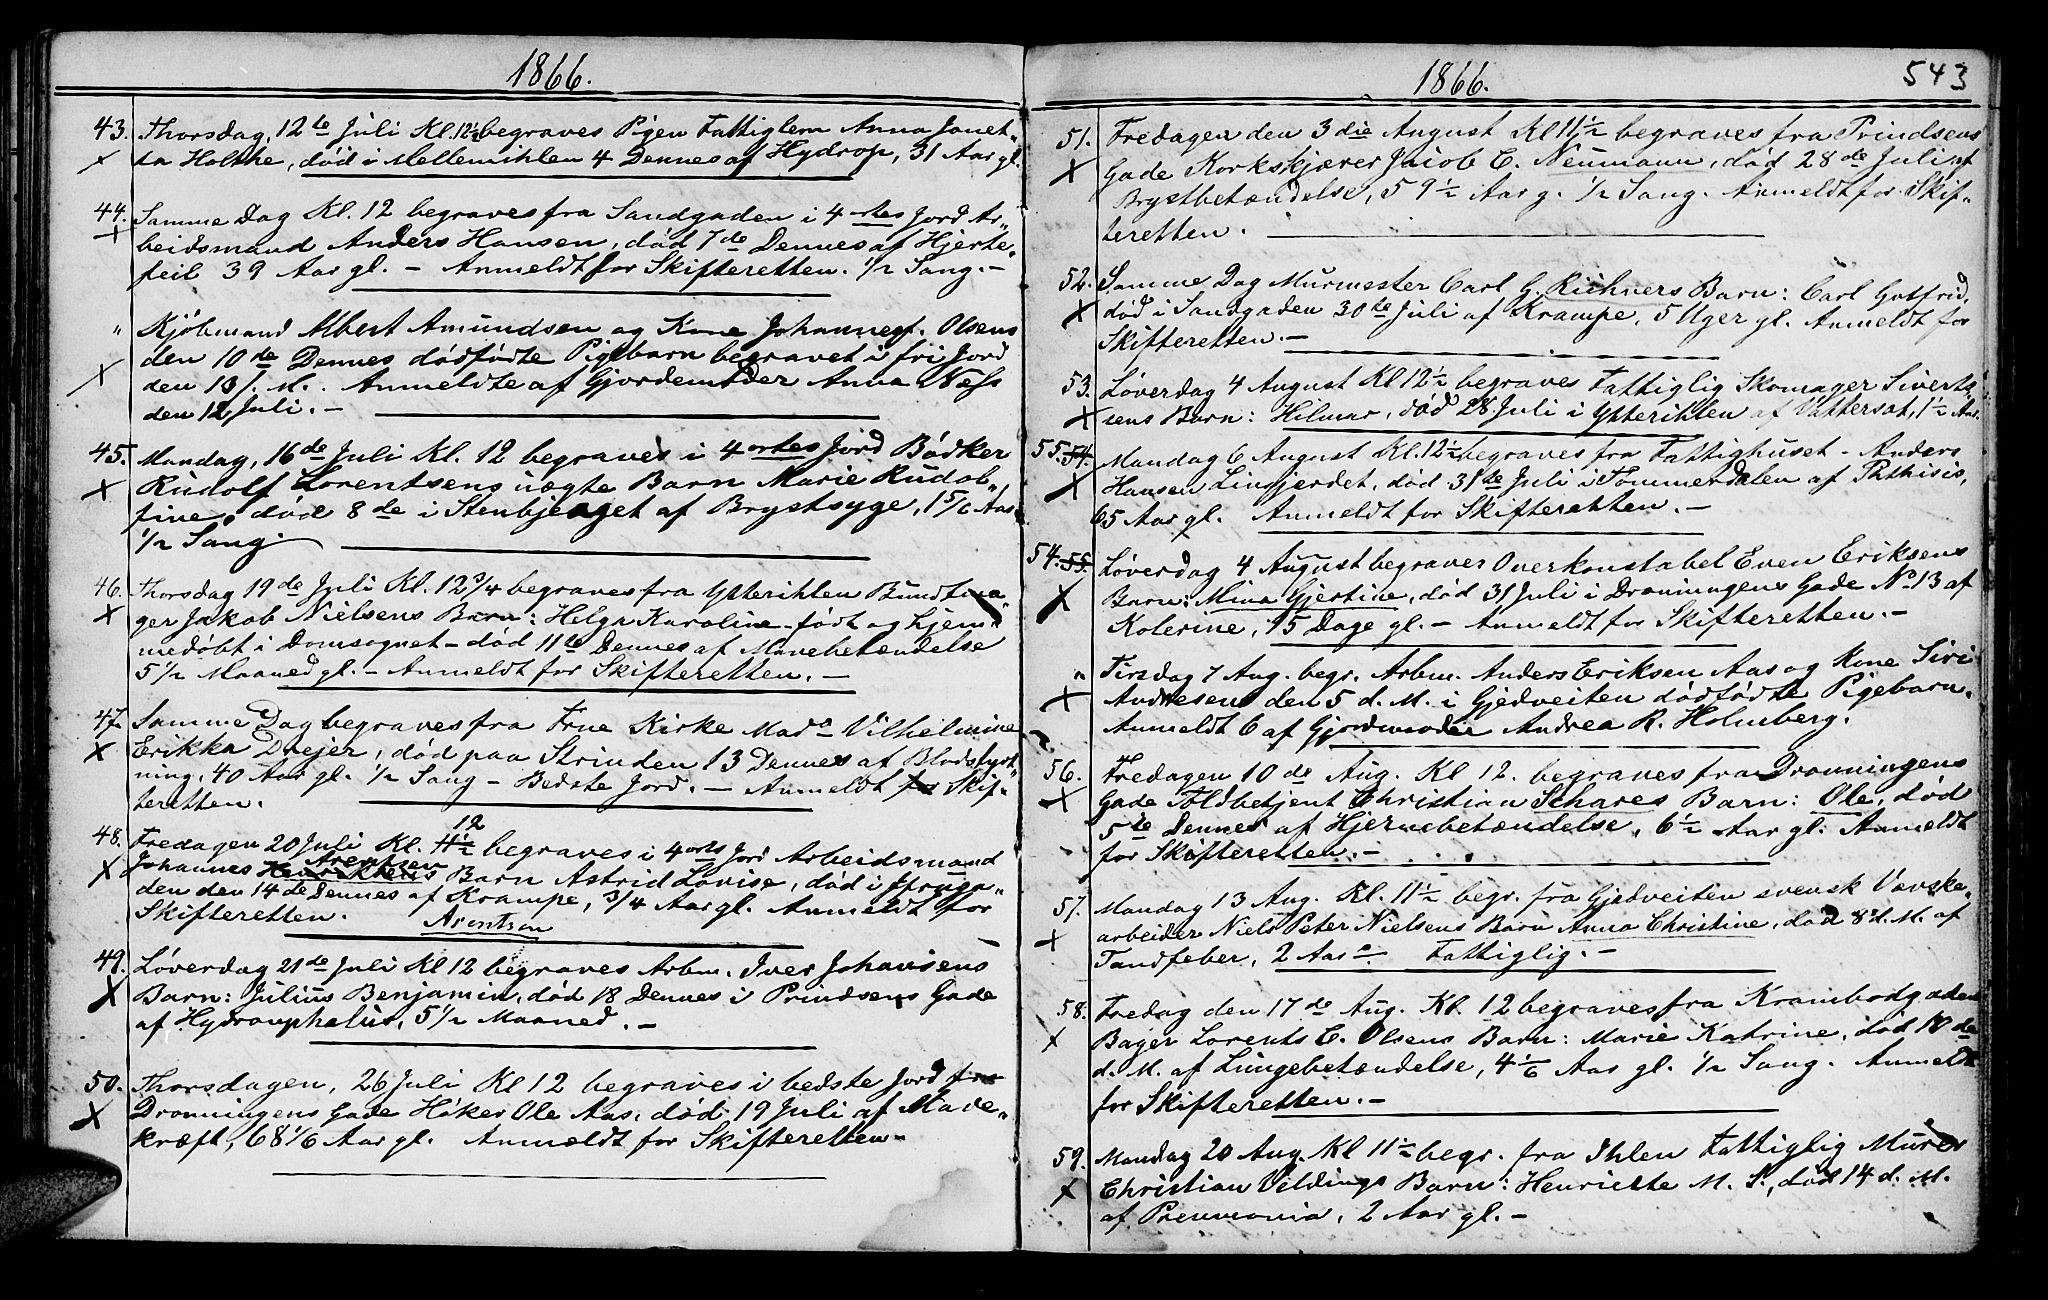 1866.
43. Thorsdag, 12te Juli Kl. 12½ begraves Pigen Fattiglem Anna Janet-
ta Holthe, død i Mellemihlen 4 Dennes af Hydrop, 31 Aar gl.
44. Samme Dag Kl. 12 begraves fra Sandgaden i 4 ortes Jord Ar-
beidsmand Anders Hansen, død 7de Dennes af Hjerte-
feil 39 Aar gl. – Anmeldt for Skifteretten. ½ Sang. –
" Kjöbmand Albert Amundsen og Kone Johanne f. Olsens
den 10de Dennes dödfödte Pigebarn begravet i fri Jord
den 13 d. M. Anmeldte af Gjordemoder Anna Næss
den 12 Juli. –
45. Mandag, 16de Juli Kl. 12 begraves i 4 ortes Jord Bödker
Rudolf Lorentsens uægte Barn Marie Rudol-
fine, död 8de i Stenbjerget af Brystsyge, 1 5/6 Aar
½ Sang.
46. Thorsdag 19de Juli Kl. 12¾ begraves fra Ytterihlen Bundtma-
ger Jakob Nielsens Barn: Helga Karoline – født og hjem-
medöbt i Domsognet – död 11te Dennes af Mavebetændelse
5½ Maaned gl. – Anmeldt for Skifteretten. –
47. Samme Dag begraves fra Frue Kirke Mada Vilhelmine
Erikka Drejer, död paa Strinden 13 Dennes af Blodstyrt-
ning, 40 Aar gl. ½ Sang – Bedste Jord. – Anmeldt for Skif-
teretten.
12
48. Fredagen 20 Juli Kl. 11½ begraves i 4 ortes Jord Arbeidsmand
Arentsen
Johannes Henriksens Barn Astrid Lovise, död i
den den 14de Dennes af Krampe, ¾ Aar gl. Anmeldt for
Skifteretten. Arentsen
49. Løverdag 21de Juli Kl 12 begraves Arbm. Iver Johansens
Barn: Julius Benjamin, död 18 Dennes i Prindsens Gade
af Hydrocephalus, 5½ Maaned. –
50. Thorsdagen, 26 Juli Kl 12 begraves i bedste Jord fra
Dronningens Gade Höker Ole Aas, død 19 Juli af Mave-
kræft, 68 1/6 Aar gl. Anmældt for Skifteretten –
1866. 543
51. Fredagen den 3die August Kl 11½ begraves fra Prindsens
Gade Korkskjærer Jacob C. Neumann, død 28de Juli af
Brystbetændelse, 59½ Aar g. ½ Sang. Anmeldt for Skif-
teretten.
52. Samme Dag Murmester Carl G. Richners Barn: Carl Gotfrid,
död i Sandgaden 30te Juli af Krampe, 5 Uger gl. Anmeldt for
Skifteretten. –
53. Løverdag 4 August Kl 12½ begraves Fattiglig Skomager Siverts-
sens Barn: Hilmar, död 28 Juli i Ytterihlen af Vattersot, 1½ Aar.
55. 54. Mandag 6 August Kl. 12½ begraves fra Fattighuset – Anders
Hansen Linhjerdet, död 31te Juli i Tömmerdalen af Phthisis,
65 Aar gl. Anmeldt for Skifteretten. –
54. 55. Løverdag 4 August begraver Overkonstabel Even Eriksens
Barn: Mina Gjertine, død 31 Juli i Dronningens Gade No 13 af
Kolerine, 15 Dage gl. – Anmeldt for Skifteretten. –
" Tirsdag 7 Aug. begr. Arbm. Anders Eriksen Aas og Kone Siri
Andresens den 5 d. M. i Gjedveiten dödfödte Pigebarn.
Anmeldt 6 af Gjordemoder Andrea R. Holmberg.
56. Fredagen 10de Aug. Kl 12. begraves fra Dronningens
Gade Toldbetjent Christian Schares Barn: Ole, död
5te Dennes af Hjernebetændelse, 6½ Aar gl. Anmeldt
for Skifteretten. –
57. Mandag 13 Aug. Kl. 11½ begr. fra Gjedveiten svensk Væske-
arbeider Niels Peter Nielsens Barn Anna Christine, död 8 d. M. af
Tandfeber, 2 Aar. Fattiglig. –
58. Fredag den 17de Aug. Kl. 12 begraves fra Krambodgaden
Bager Lorents C. Olsens Barn: Marie Katrine, död 10de
d. M. af Lungebetændelse, 4 1/6 Aar gl. ½ Sang. Anmeldt
for Skifteretten. –
59. Mandag 20 Aug. Kl 11½ begr. fra Ihlen Fattiglig Murer
Christian Veldings Barn: Henriette M. S., död 14 d. M.
af Pneumonia, 2 Aar gl. –